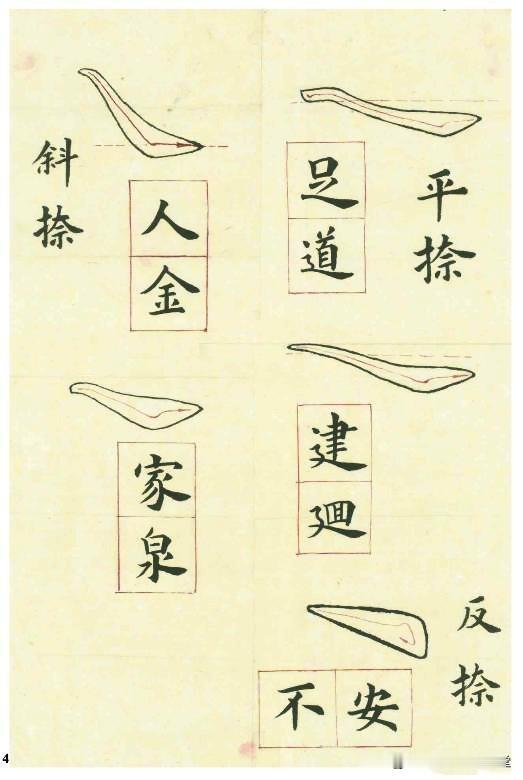 平捺
足
道
建
廻
反捺
不安
斜捺
人
金
家
泉
4